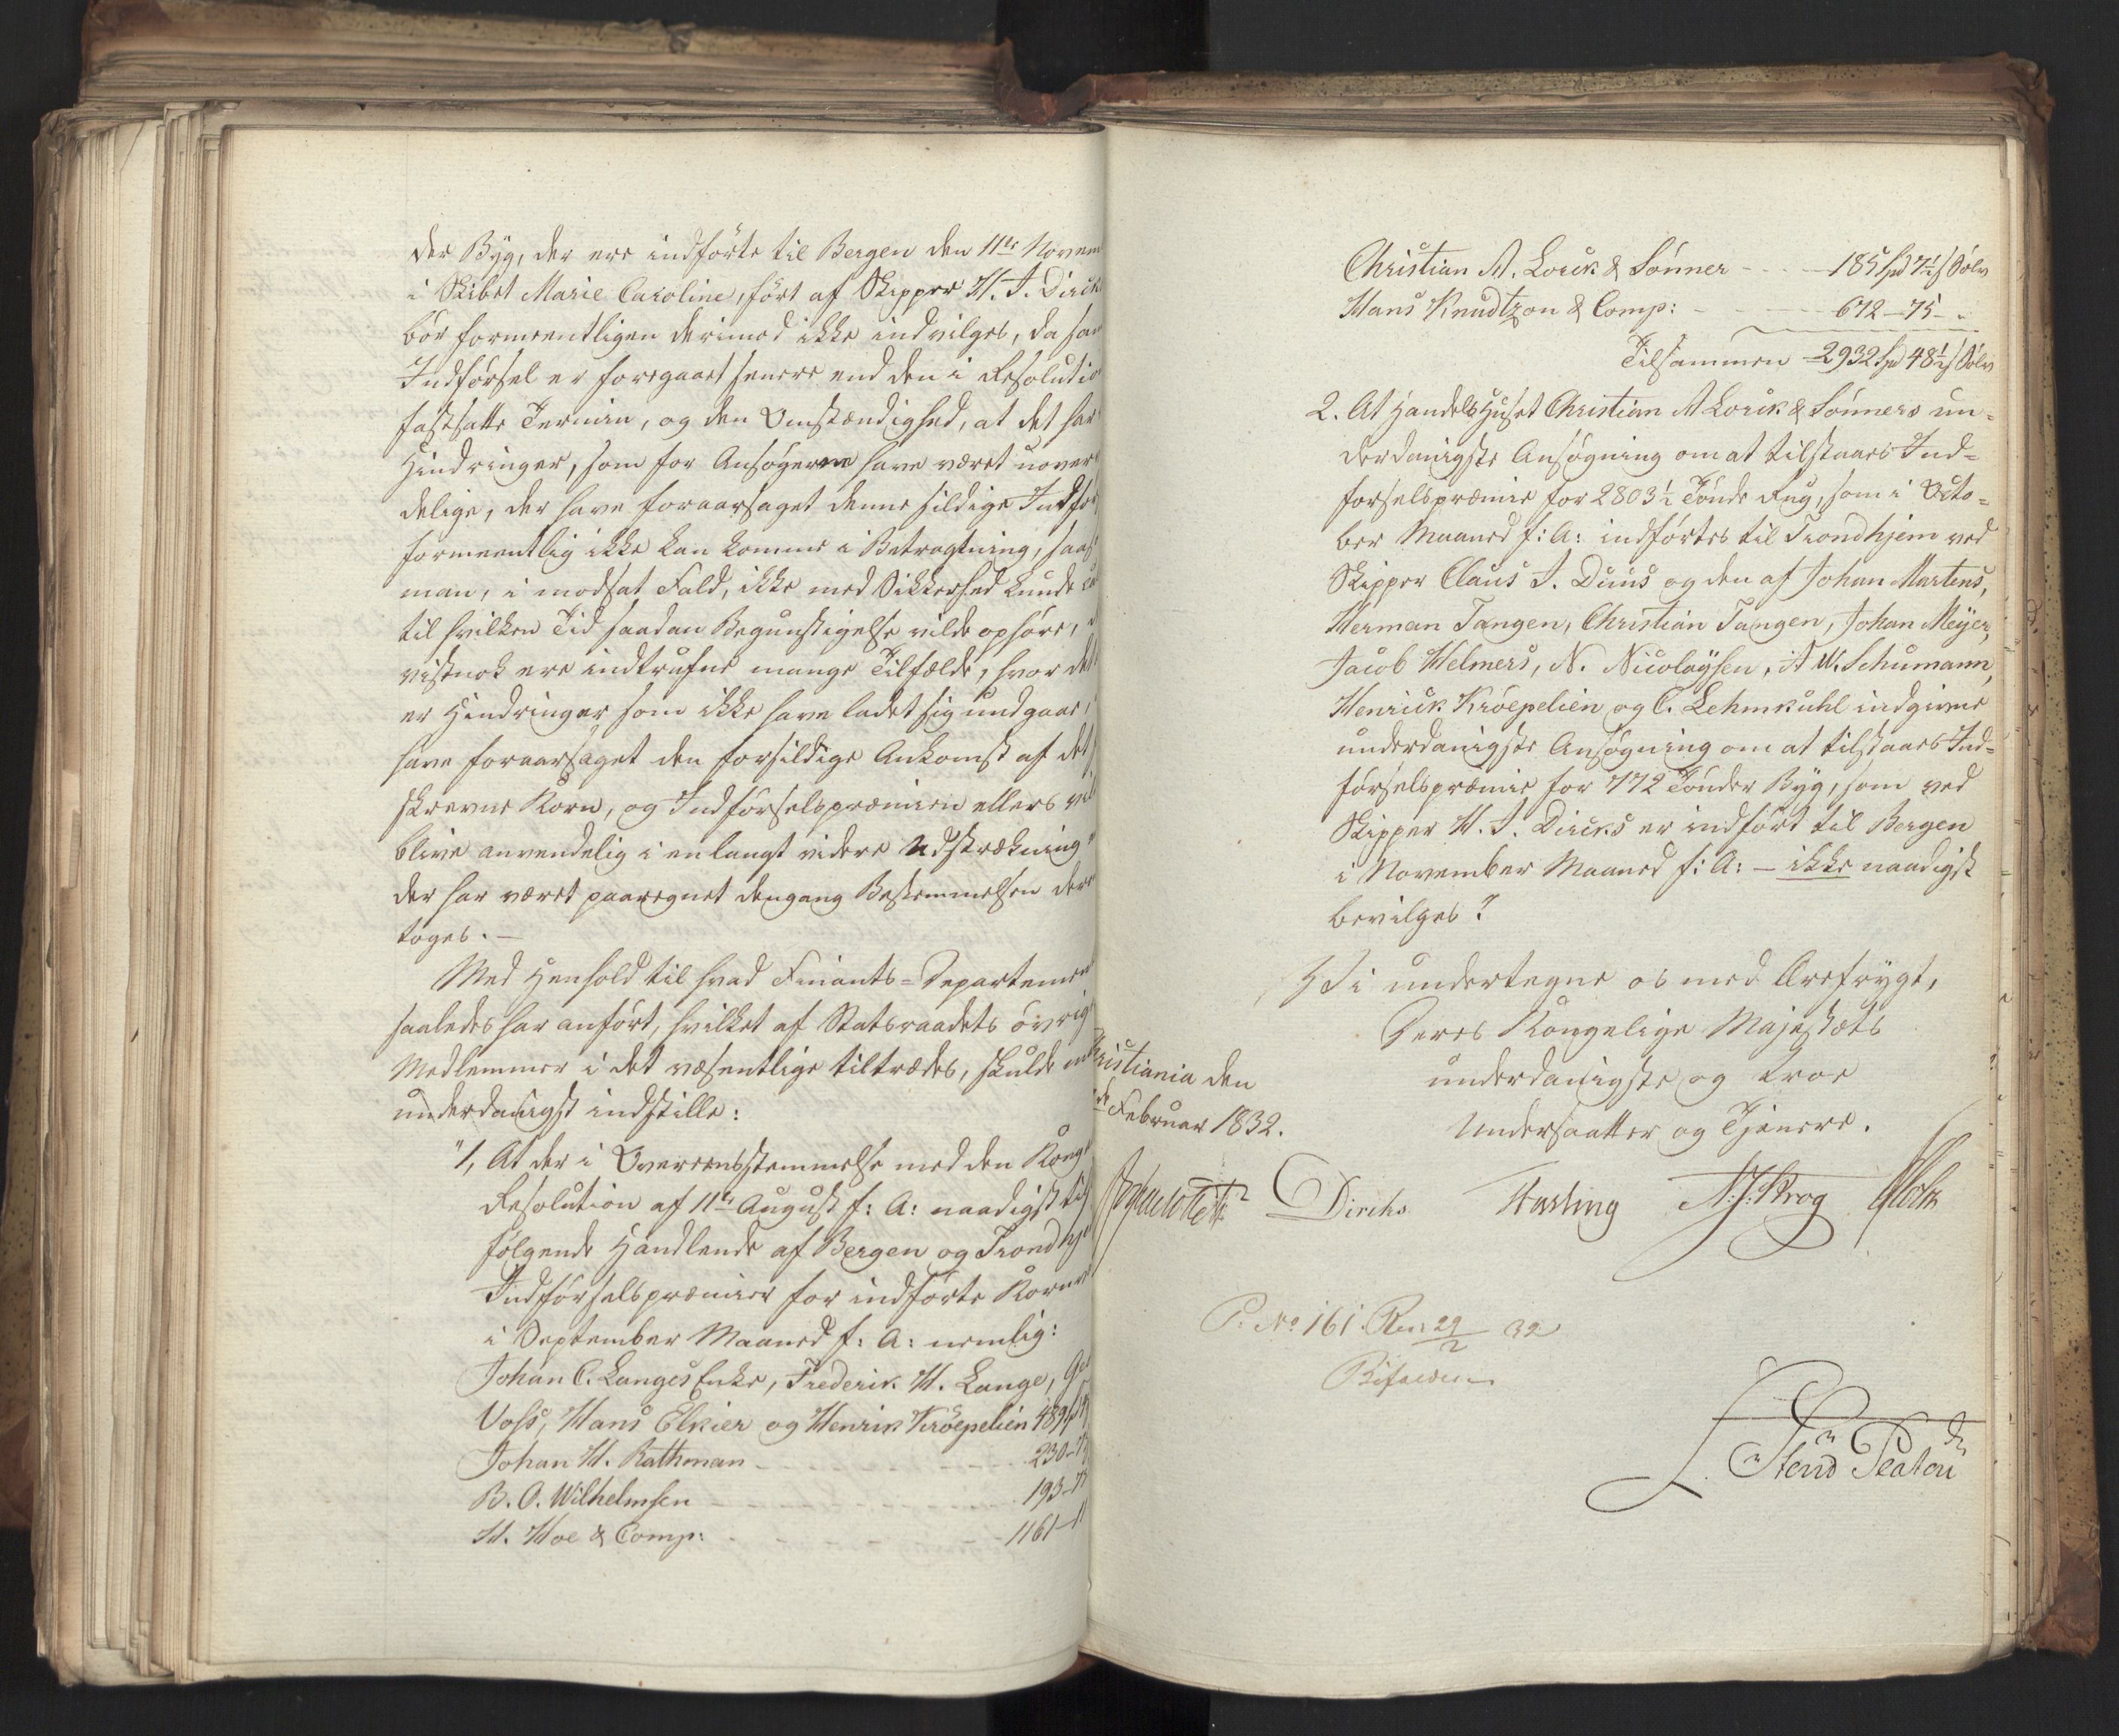 der Byg, der ere indførte til Bergen den 11te Novem
i Skibet Marie Caroline, ført af Skipper H. J. Dirck
bör formeentligen derimod ikke indvilges, da saa
Indførsel er foregaaet senere end den i Resolutio
fastsatte Termin, og den Omstændighed, at det har
Hindringer, som for Ansøgerne have været uover
delige, der have foraarsaget denne sildige Indfør
formeentlig ikke kan komme i Betragtning, saa
man, i modsat Fald, ikke med Sikkerhed kunde
til hvilken Tid saadan Begunstigelse vilde ophøre,
vistnok ere indtrufne mange Tilfælde, hvor det
er Hindringer som ikke have ladet sig undgaae,
have foraarsaget den forsildige Ankomst af det
skrevne Korn, og Indførselspræmien ellers vil
blive anvendelig i en langt videre Udstrækning
der har været paaregnet dengang Bestemmelsen der
toges. —
Med Henhold til hvad Finants-Departemen
saaledes har anført, hvilket af Statsraadets øvrig
Medlemmer i det væsentlige tiltrædes, skulde
underdanigst indstille:
"1, At der i Overeensstemmelse med den Konge
Resolution af 11te August f: A: naadigst til
følgende Handlende af Bergen og Trondhje
Indførselspræmier for indførte Korn
i September Maaned f: A: nemlig:
Johan C. Langes Enke, Frederik H. Lange,
Voss, Hans Elkier og Henrik Kröepelien 489
Johan H. Rathman - - - 230-
B. O. Wilhelmsen - - - 193-
H. Hoe & Comp: - - - 1161-
Christian A. Lorck & Sönner - - - 185 Spd 7½ s Sølv
Hans Knudtzon & Comp: - - - 672-75-
Tilsammen 2932 Spd 48½ s Sølv
2. At Handelshuset Christian A Lorck & Sönners un-
derdanigste Ansøgning om at tilstaaes Ind-
førselspræmie for 2803½ Tønde Rug, som i Octo-
ber Maaned f: A: indførtes til Trondhjem ved
Skipper Claus J. Duus og den af Johan Martens,
Herman Tangen, Christian Tangen, Johan Meyer,
Jacob Helmers, N. Nicolaysen, A W. Schumann,
Henrick Kröepelien og C. Lehmkuhl indgivne
underdanigste Ansøgning om at tilstaaes Ind-
førselspræmie for 772 Tönder Byg, som ved
Skipper H. J. Dircks er indført til Bergen
i November Maaned f: A: — ikke naadigst
bevilges?
Vi undertegne os med Ærefrygt,
Deres Kongelige Majestæts
underdanigste og troe
Undersaatter og Tjenere.
ristiania den
Februar 1832.
Diriks Hasting N. J. Krog
P. No 161. Res 29/2 32
Bifaldes